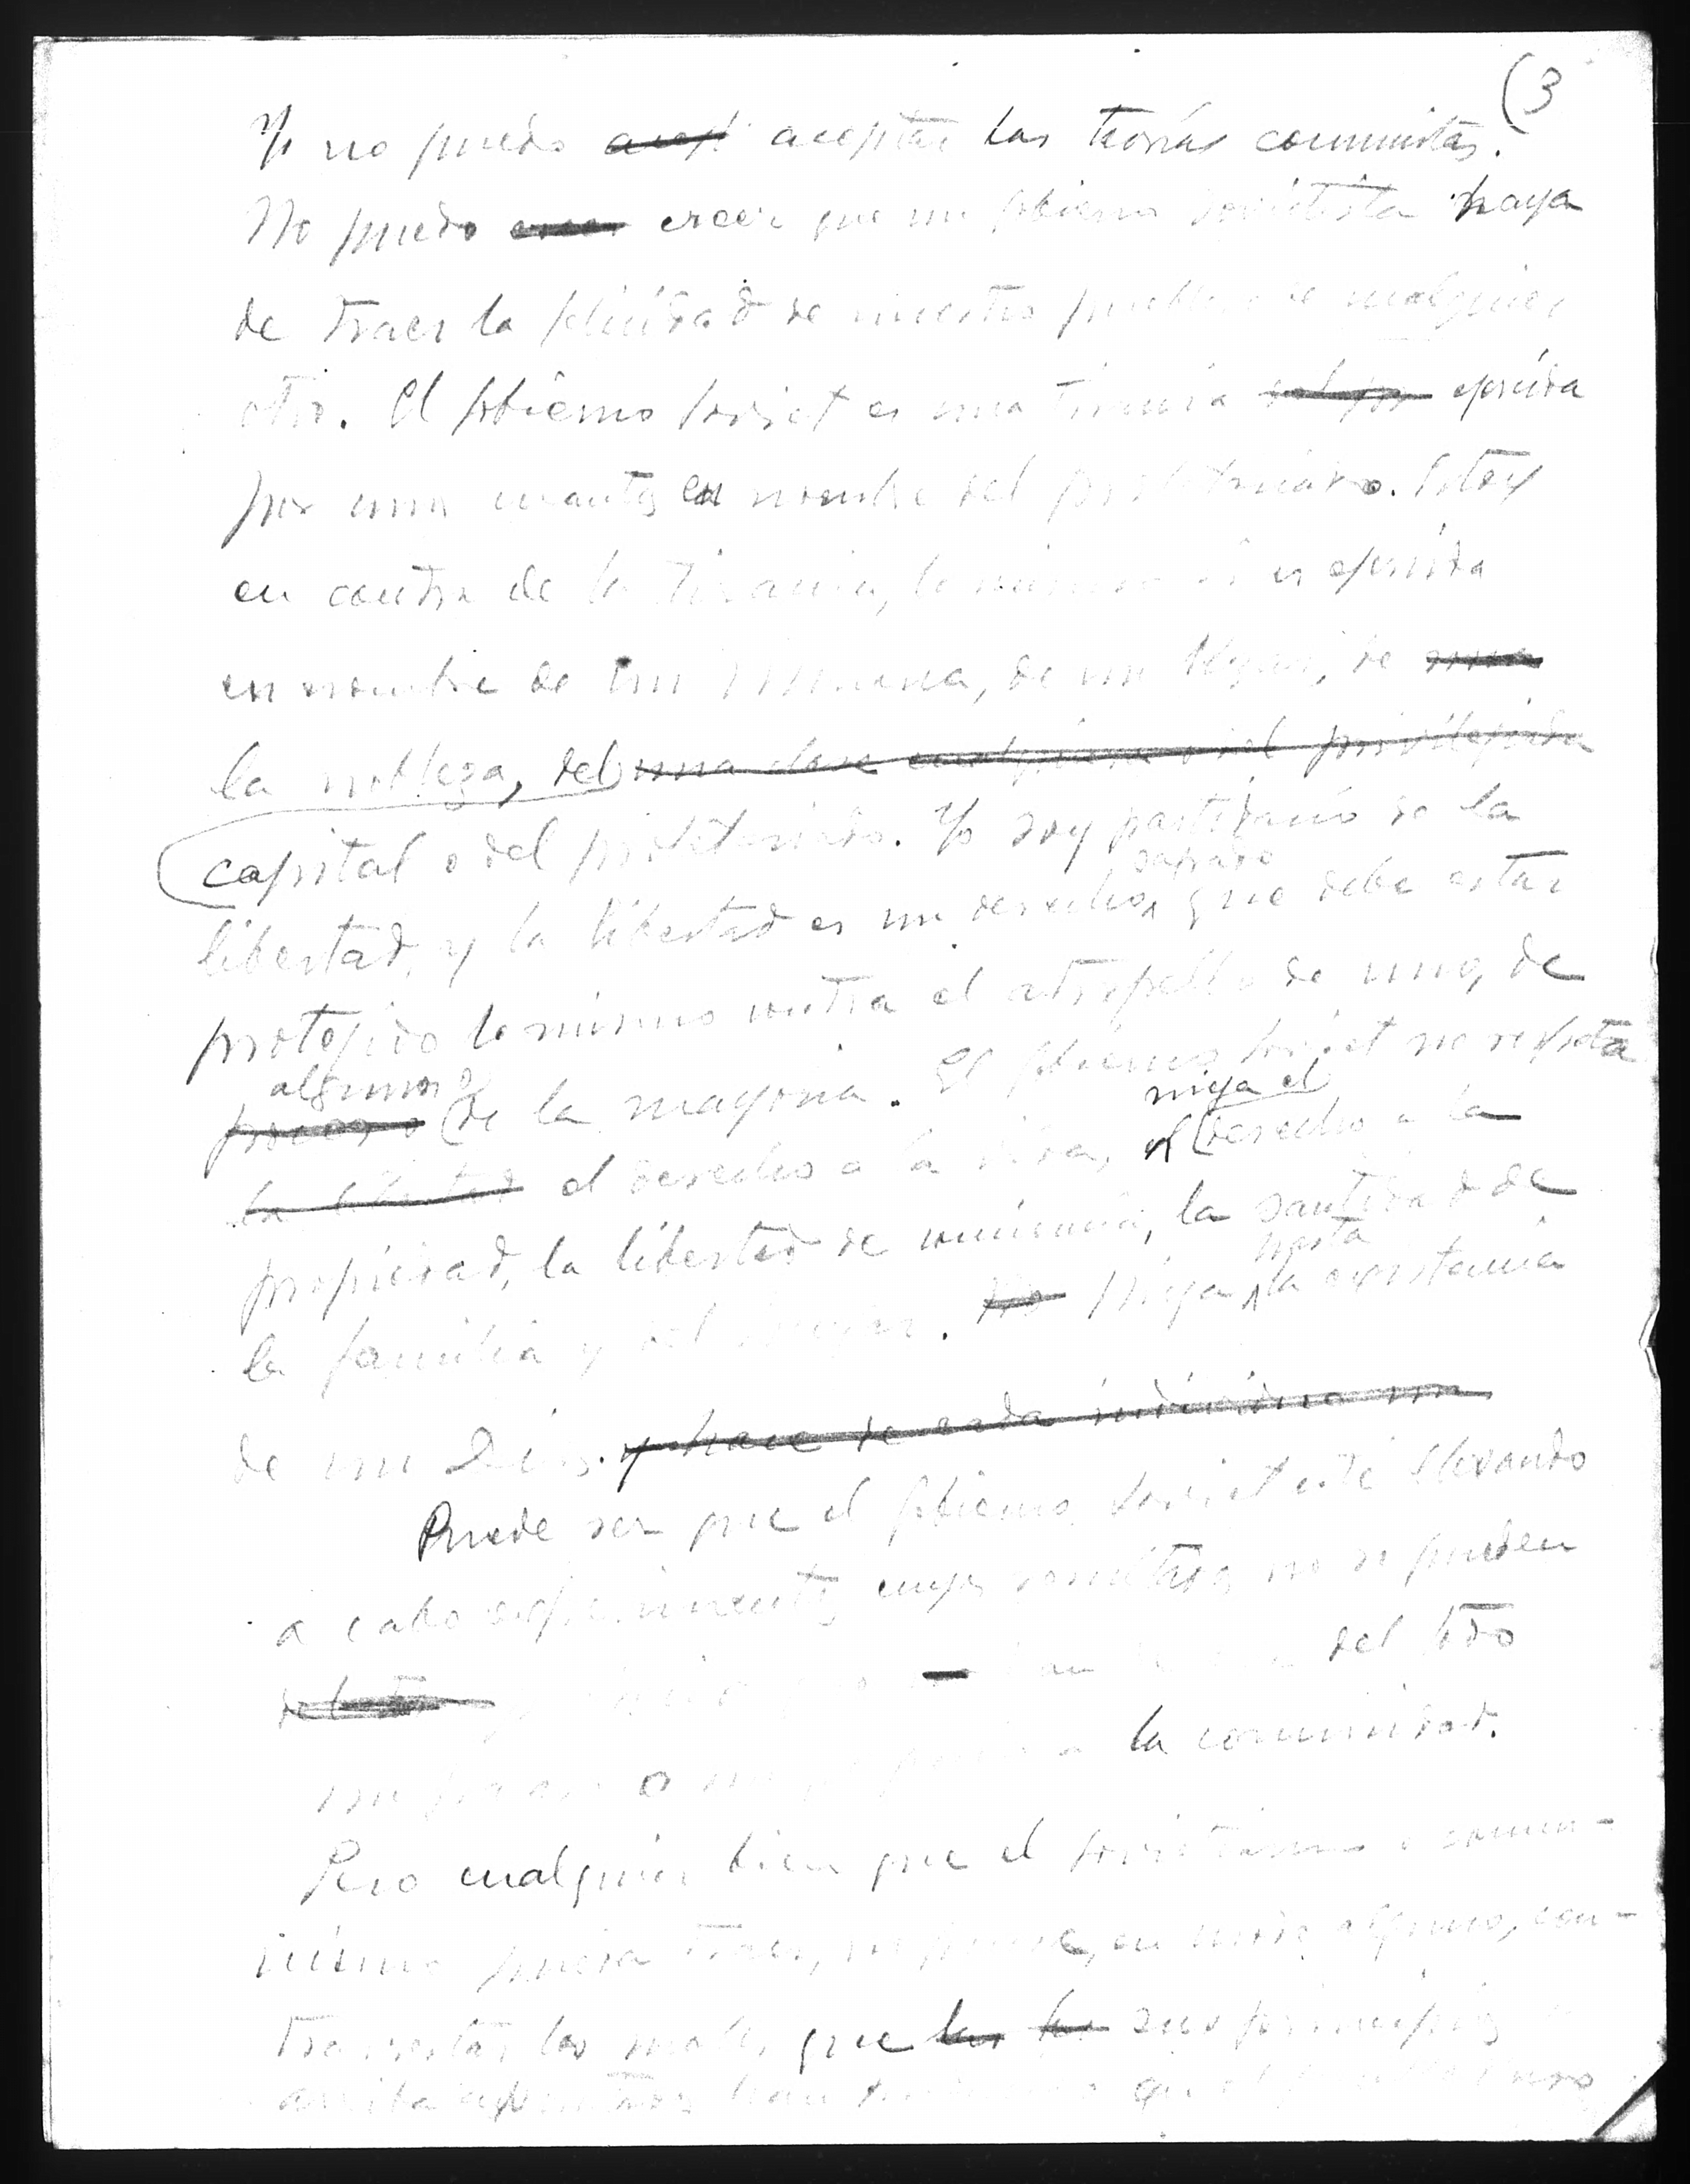 (3
Yo no puedo acept aceptar las teorías comunistas.
No puedo creer creer que un gobierno sovietista haya
de traer la felicidad de nuestro pueblo o de cualquier
otro. El gobierno soviet es una tiranía ejercida
por unos cuantos en nombre del proletariado. Estoy
en contra de la tiranía, lo mismo si es ejercida
en nombre de un monarca, de un de una
la nobleza, del una clase privilegiada
capital o del proletariado. Yo soy partidario de la
sagrado
libertad, y la libertad es un derecho que debe estar
protegido lo mismo contra el atropello de uno, de
algunos o
de la mayoría. El gobierno soviet no respeta
niega el
la libertad el derecho a la vida, el derecho a la
propiedad, la libertad de conciencia, la santidad de
hasta
la familia y del hogar. Niega la existencia
de un Dios. y hace de cada individuo un
Puede ser que el gobierno soviet esté llevando
a cabo experimentos cuyos resultados no se pueden
del todo
o la comunidad.
Pero cualquier bien que el sovietismo o comu-
nismo pueda traer, no puede, en modo alguno, con-
trarrestar los males que los sus principios
arriba expresados han